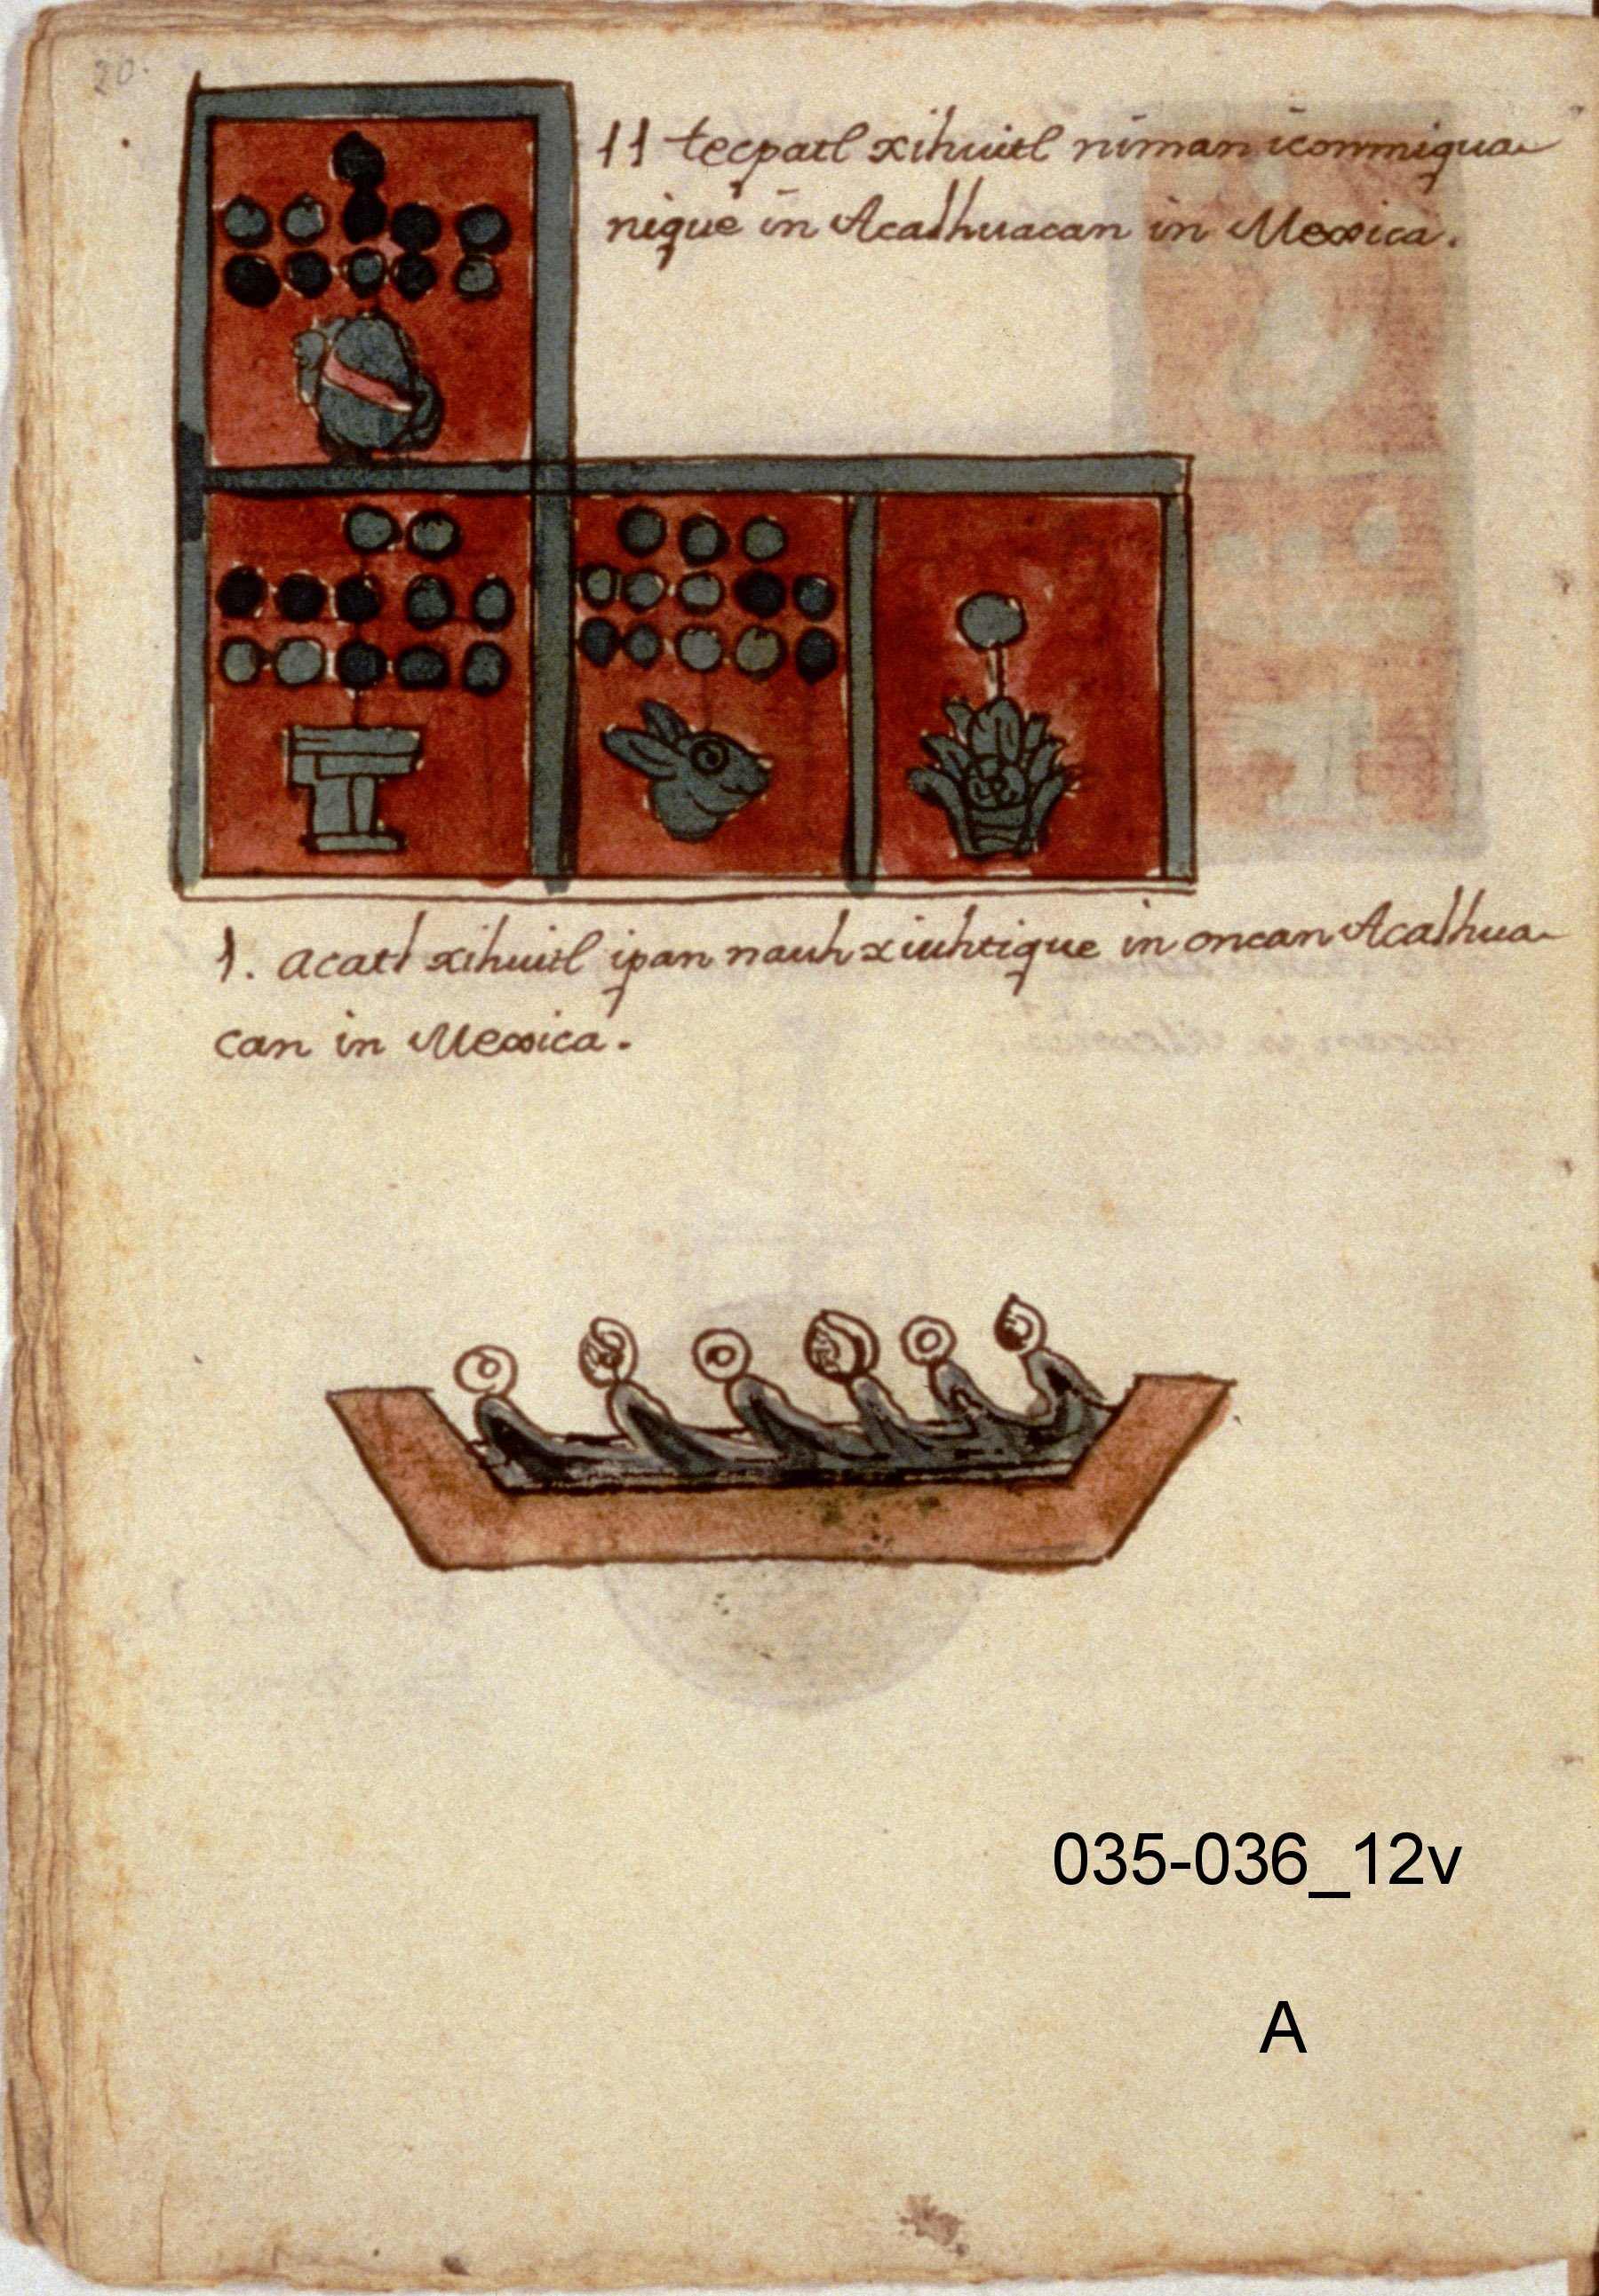 20.
11 tecpatl xihuitl niman iconmiqua
nique in Acalhuacan in Mexica.
1. acatl xihuitl ipan nauhxiuhtique in oncan Acalhua
can in Mexica.
035-036_12v
A